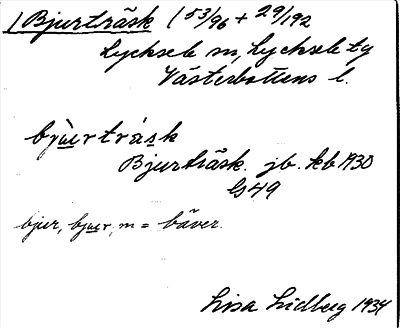 / Bjurträsk (53/96 + 29/192
Lycksele m, Lycksele tg
Västerbottens l.
bjùertrásk
Bjurträsk. jb. kb 1930
G 49
bjur, bjuer, m = bäver.
Lisa Lidberg 1934